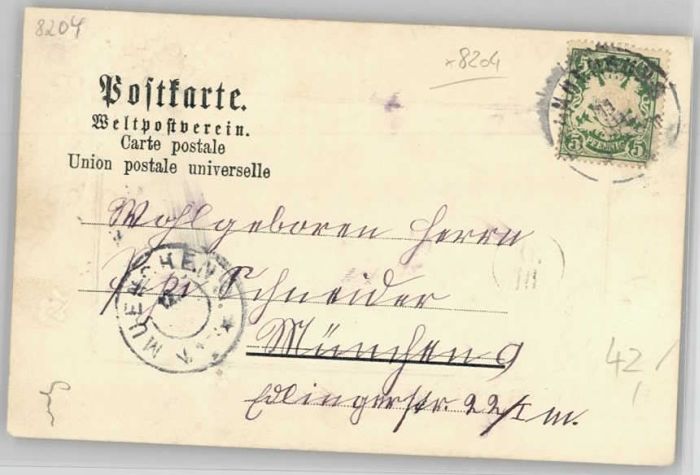 8204
x8204
Postkarte.
Weltpostverein.
Carte postale
Union postale universelle
5 PFENNIG 5
Wohlgeboren Herrn
Schneider
München 9
Edlingerstr. 22/I m.
MUENCHEN
42/